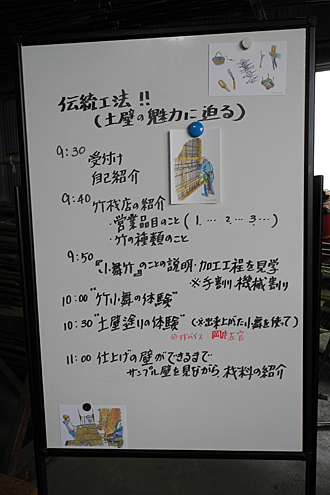 伝統工法!!
(土壁の魅力に迫る)
9:30 受付け
自己紹介
9:40 竹材店の紹介
・営業品目のこと(1.… 2.… 3.…)
・竹の種類のこと
9:50 『小舞竹』のことの説明・加工工程を見学
※手割り、機械割り
10:00 "竹小舞の体験"
10:30 "土壁塗りの体験" (※出来上がった小舞を使って)
アドバイス:岡井左官
11:00 仕上げの壁ができるまで
サンプル壁を見ながら、材料の紹介